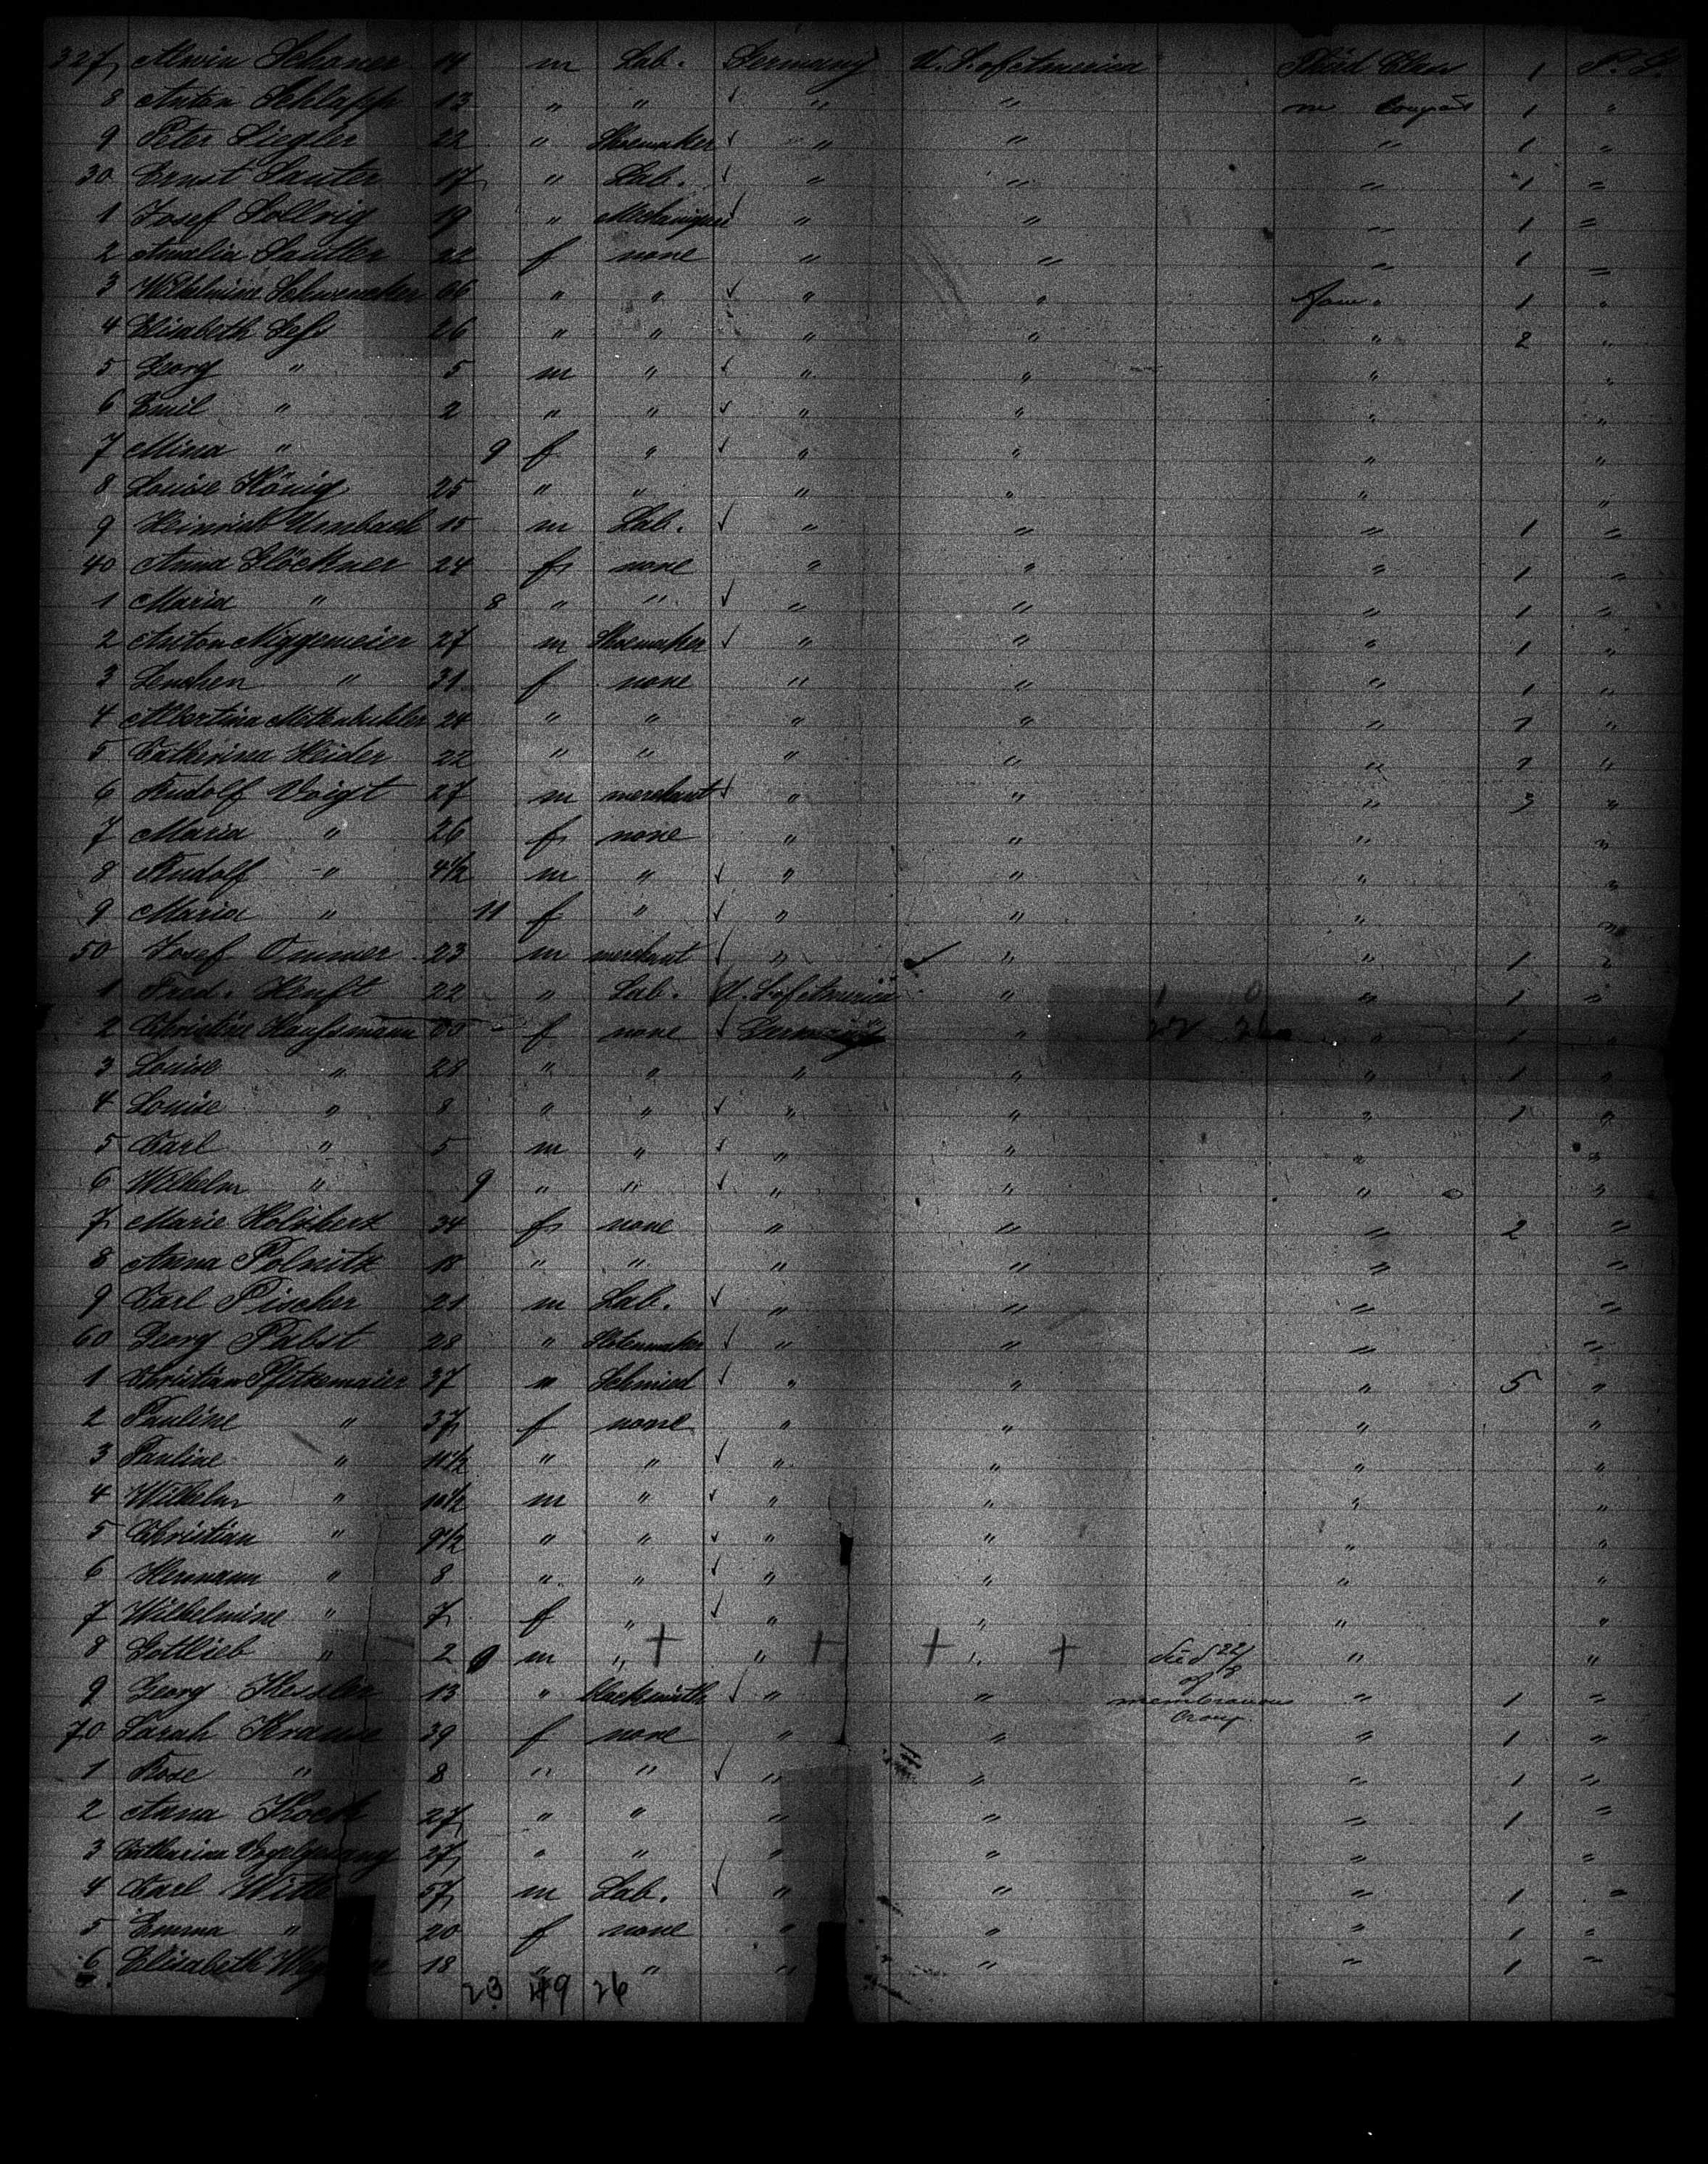 327 Alwin Schaner 14 m Lab. Germany U. S. of America Third Class 1 P. S.
8 Anton Schlapp 13 " " " " m Compart 1 "
9 Peter Siegler 22 " Shoemaker " " " 1 "
30 Ernst Sauter 17 " Lab. " " " 1 "
1 Josef Sollvig 19 " " " " 1 "
2 Amalia Sautter 22 f none " " " 1 "
3 Wilhelmine Schwencker 66 " " " " Fam " 1 "
4 Elisabeth 26 " " " " " 2 "
5 Georg " 5 m " " " " "
6 Emil " 2 " " " " " "
7 Mina " 9 f " " " " "
8 Louise König 25 " " " " " "
9 Heinrich Umbach 15 m Lab. " " " 1 "
40 Anna Glöckner 24 f none " " " 1 "
1 Maria " 8 " " " " " 1 "
2 Anton Niggemeier 27 m Shoemaker " " " 1 "
3 Lenchen " 31 f none " " " 1 "
4 Albertina 24 " " " " " 1 "
5 Catherina Heider 22 " " " " " 1 "
6 Rudolf Voigt 27 m merchant " " " 3 "
7 Maria " 26 f none " " " "
8 Rudolf " 4 1/2 m " " " " "
9 Maria " 11 f " " " " "
50 Josef Ommer 23 m merchant " " " 1 "
1 Fred. Henft 22 " Lab. U. S. of America " " 1 "
2 Christine Haufsmann f none Germany " 22 " 1 "
3 Louise " 28 " " " " " 1 "
4 Louise " 8 " " " " " 1 "
5 Carl " 5 m " " " " "
6 Wilhelm " 9 " " " " " "
7 Marie Holzherz 34 f none " " " 2 "
8 Anna Polnitz 18 " " " " " "
9 Carl Pischer 21 m Lab. " " " "
60 Georg Pabst 28 " " " " "
1 Christian Pfitzemaier 37 m Schmied " " " 5 "
2 Pauline " 37 f none " " " "
3 Pauline " 11 1/2 " " " " " "
4 Wilhelm " 10 1/2 m " " " " "
5 Christian " 9 1/2 " " " " " "
6 Hermann " 8 " " " " " "
7 Wilhelmine " 7 f " " " " "
8 Gottlieb " 2 m " + " + + " + died 22/8 " "
of
9 Georg Kessler 13 " blacksmith " " membranous " 1 "
Croup.
70 Sarah Krause 39 f none " " " 1 "
1 Rose " 8 " " " " " 1 "
2 Anna Koch 27 " " " " " 1 "
3 Catharina Vogelgesang 27 " " " " " "
4 Carl Witte 57 m Lab. " " " 1 "
5 Emma " 20 f none " " " 1 "
6 Elisabeth 18 " " " " " 1 "
23 49 26